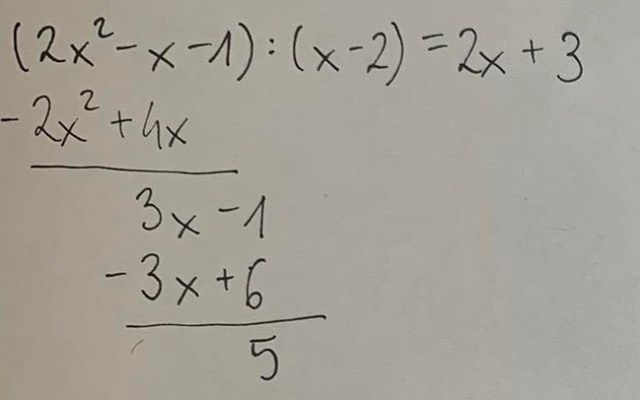 (2x² - x - 1) : (x - 2) = 2x + 3
- 2x² + 4x
3x - 1
- 3x + 6
5